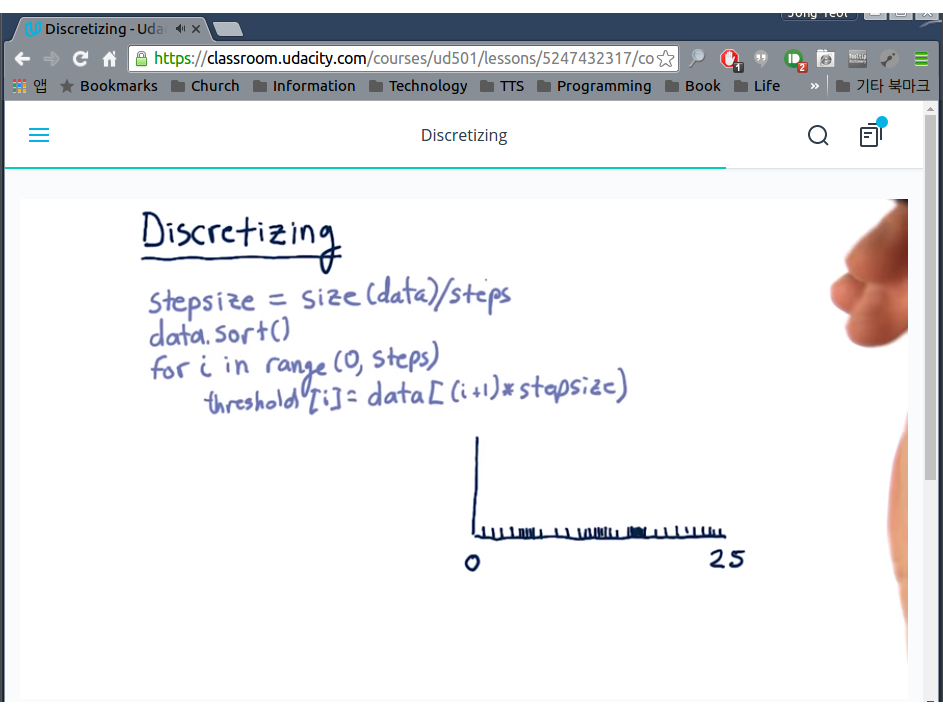 Jong Yeol
Discretizing - Uda
https://classroom.udacity.com/courses/ud501/lessons/5247432317/co
1
2
앱 Bookmarks Church Information Technology TTS Programming Book Life » 기타 북마크
Discretizing
Discretizing
stepsize = size(data)/steps
data.sort()
for i in range(0, steps)
threshold[i]= data[(i+1)*stepsize)
0 25